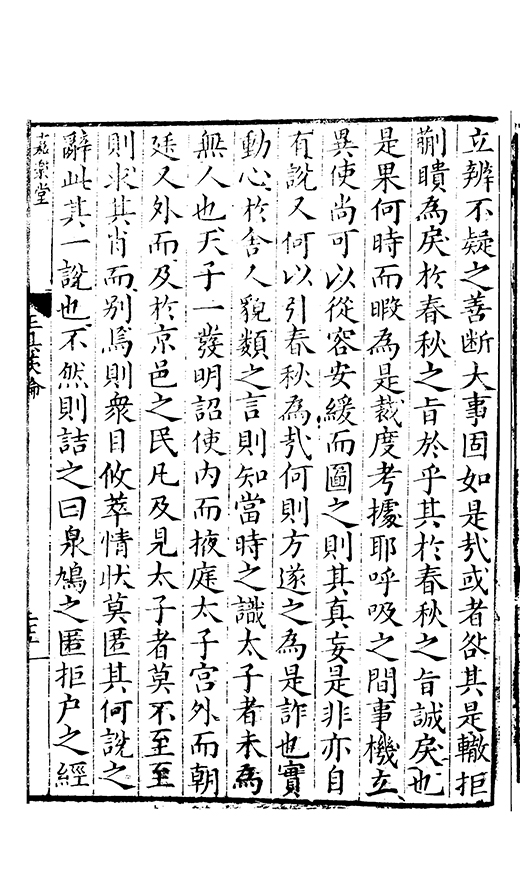 立辨不疑之善斷大事固如是㢤或者咎其是輙拒
蒯瞶為戾於春秋之旨於乎其於春秋之旨誠戾也
是果何時而暇為是裁度考據耶呼吸之間事機立
異使尚可以從容安緩而圖之則其真妄是非亦自
有說又何以引春秋為㢤何則方遂之為是詐也實
動心於舍人貌類之言則知當時之識太子者未為
無人也天子一發明詔使內而掖庭太子宮外而朝
廷又外而及於京邑之民凡及見太子者莫不至至
則求其肖而別焉則衆目攸萃情狀莫匿其何說之
辭此其一說也不然則詰之曰泉鳩之匿拒户之經
嘉樂堂